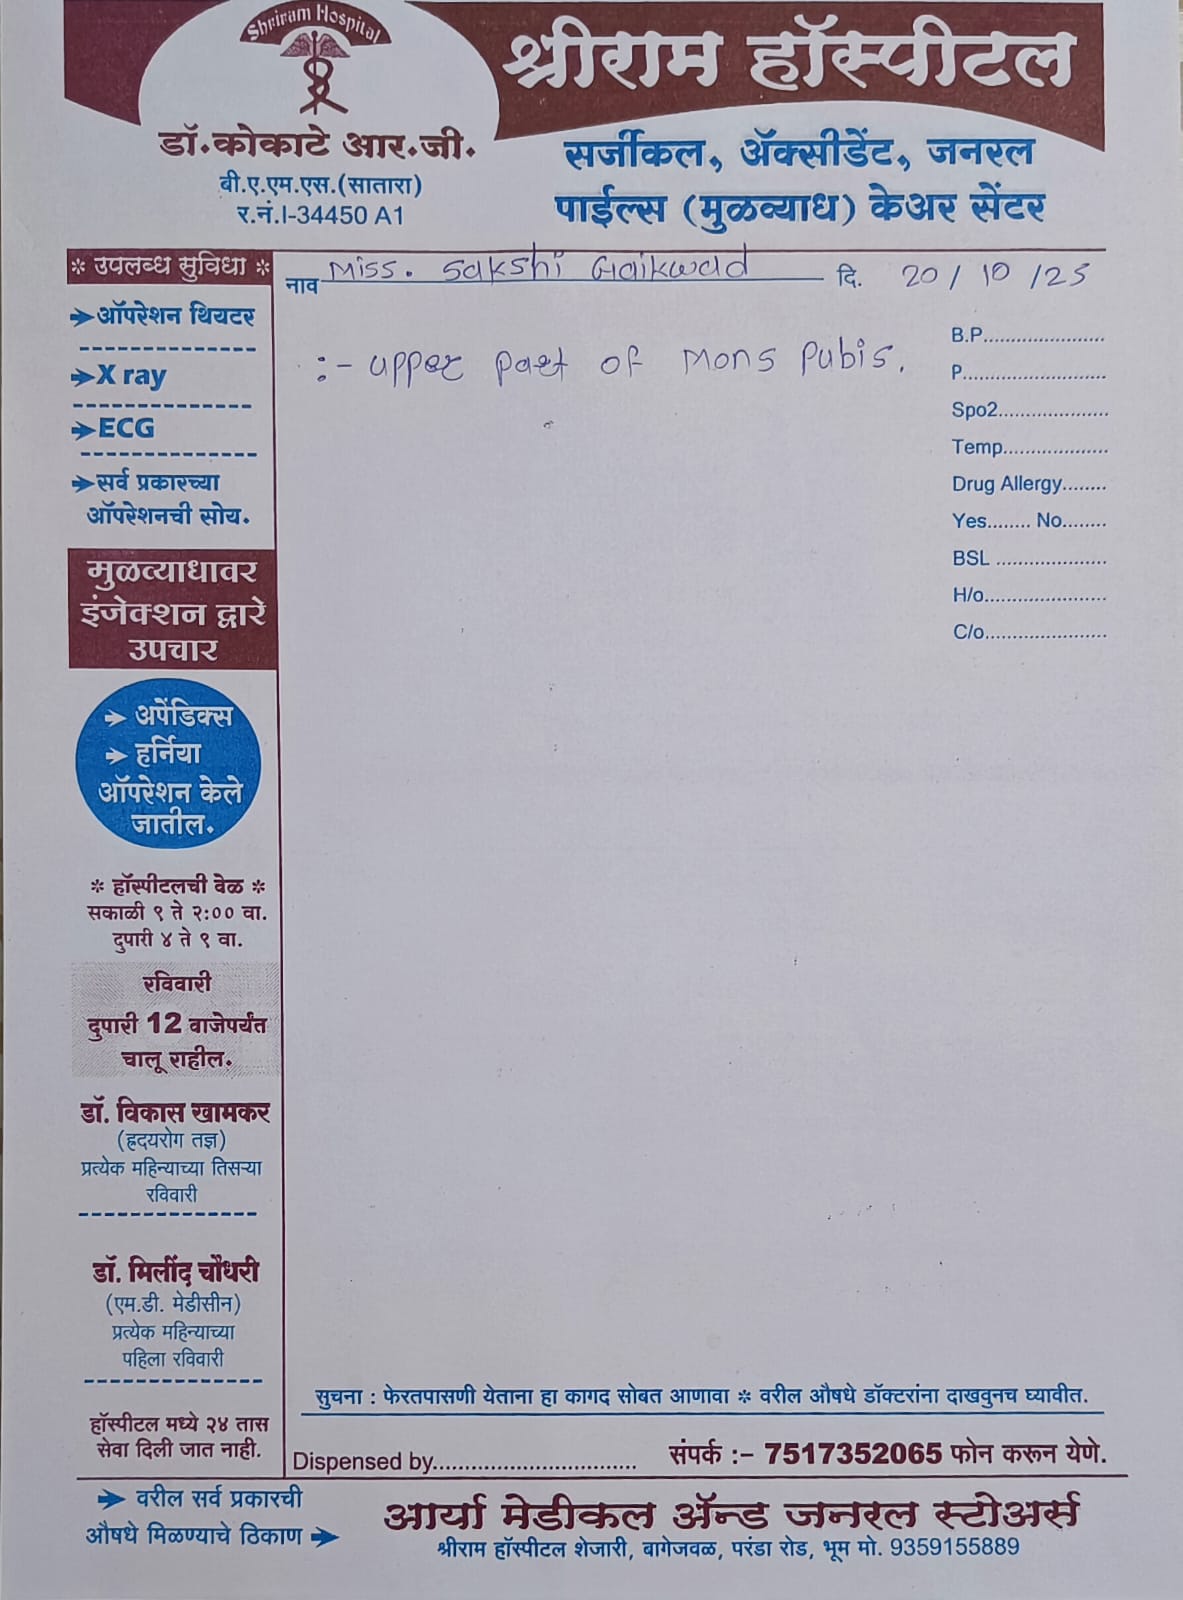 Shriram Hospital
श्रीराम हॉस्पीटल
डॉ.कोकाटे आर.जी.
बी.ए.एम.एस.(सातारा)
र.नं.I-34450 A1
सर्जीकल, ॲक्सीडेंट, जनरल
पाईल्स (मुळव्याध) केअर सेंटर
* उपलब्ध सुविधा *
➔ऑपरेशन थियटर
➔X ray
➔ECG
➔सर्व प्रकारच्या
ऑपरेशनची सोय.
मुळव्याधावर
इंजेक्शन द्वारे
उपचार
➔ अपेंडिक्स
➔ हर्निया
ऑपरेशन केले
जातील.
* हॉस्पीटलची वेळ *
सकाळी ९ ते २:०० वा.
दुपारी ४ ते ९ वा.
रविवारी
दुपारी 12 वाजेपर्यंत
चालू राहील.
डॉ. विकास खामकर
(हृदयरोग तज्ञ)
प्रत्येक महिन्याच्या तिसऱ्या
रविवारी
डॉ. मिलींद चौधरी
(एम.डी. मेडीसीन)
प्रत्येक महिन्याच्या
पहिला रविवारी
हॉस्पीटल मध्ये २४ तास
सेवा दिली जात नाही.
नाव Miss. Sakshi Gaikwad दि. 20/10/25
:- upper part of Mons Pubis.
B.P......................
P..........................
Spo2....................
Temp...................
Drug Allergy........
Yes........ No........
BSL ....................
H/o......................
C/o......................
सुचना : फेरतपासणी येताना हा कागद सोबत आणावा * वरील औषधे डॉक्टरांना दाखवुनच घ्यावीत.
Dispensed by............................... संपर्क :- 7517352065 फोन करून येणे.
➔ वरील सर्व प्रकारची
औषधे मिळण्याचे ठिकाण ➔
आर्या मेडीकल ॲन्ड जनरल स्टोअर्स
श्रीराम हॉस्पीटल शेजारी, बागेजवळ, परंडा रोड, भूम मो. 9359155889